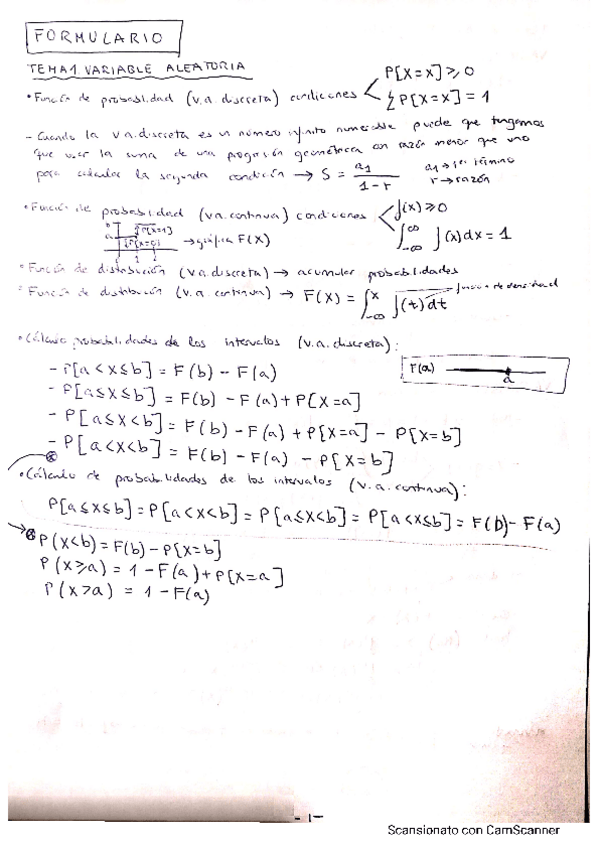 FORMULARIO
TEMA 1 VARIABLE ALEATORIA
• Función de probabilidad (v.a. discreta) condiciones < P[X=x] ≥ 0
∑ P[X=x] = 1
- Cuando la v.a. discreta es un número infinito numerable puede que tengamos
que usar la suma de una progresión geométrica con razón menor que uno
para calcular la segunda condición → S = a₁ / (1-r) a₁ → 1er término
r → razón
• Función de probabilidad (v.a. continua) condiciones < f(x) ≥ 0
∫_{-∞}^{∞} f(x) dx = 1
P[X=1]
P[X=0] → gráfica F(X)
• Función de distribución (v.a. discreta) → acumular probabilidades
• Función de distribución (v.a. continua) → F(x) = ∫_{-∞}^{x} f(t) dt función de densidad
• Cálculo probabilidades de los intervalos (v.a. discreta):
- P[a < X ≤ b] = F(b) - F(a)
F(a) a
- P[a ≤ X ≤ b] = F(b) - F(a) + P[X=a]
- P[a ≤ X < b] = F(b) - F(a) + P[X=a] - P[X=b]
- P[a < X < b] = F(b) - F(a) - P[X=b]
• Cálculo de probabilidades de los intervalos (v.a. continua):
P[a ≤ X ≤ b] = P[a < X < b] = P[a ≤ X < b] = P[a < X ≤ b] = F(b) - F(a)
P(X < b) = F(b) - P[X=b]
P(X ≥ a) = 1 - F(a) + P[X=a]
P(X > a) = 1 - F(a)
- 1 -
Scansionato con CamScanner